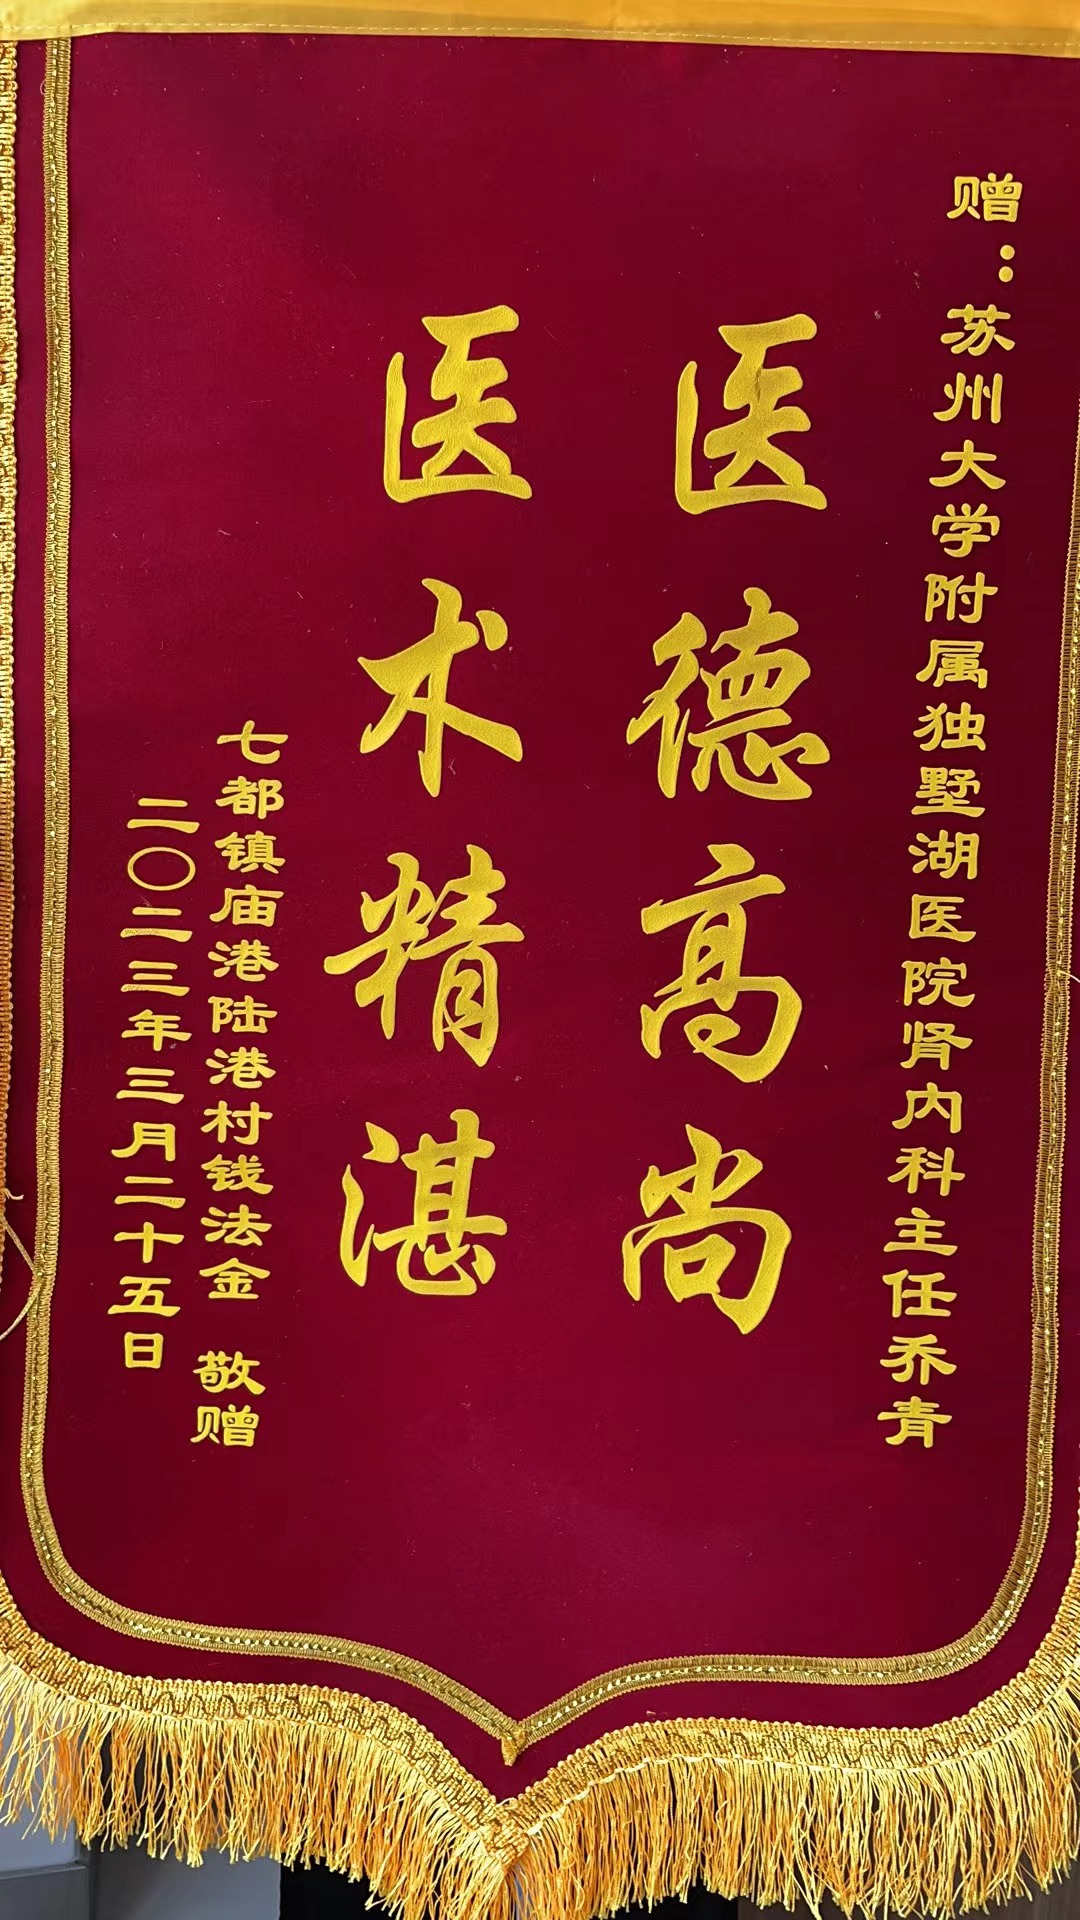 赠：苏州大学附属独墅湖医院肾内科主任乔青
医德高尚
医术精湛
七都镇庙港陆港村钱法金 敬赠
二〇二三年三月二十五日